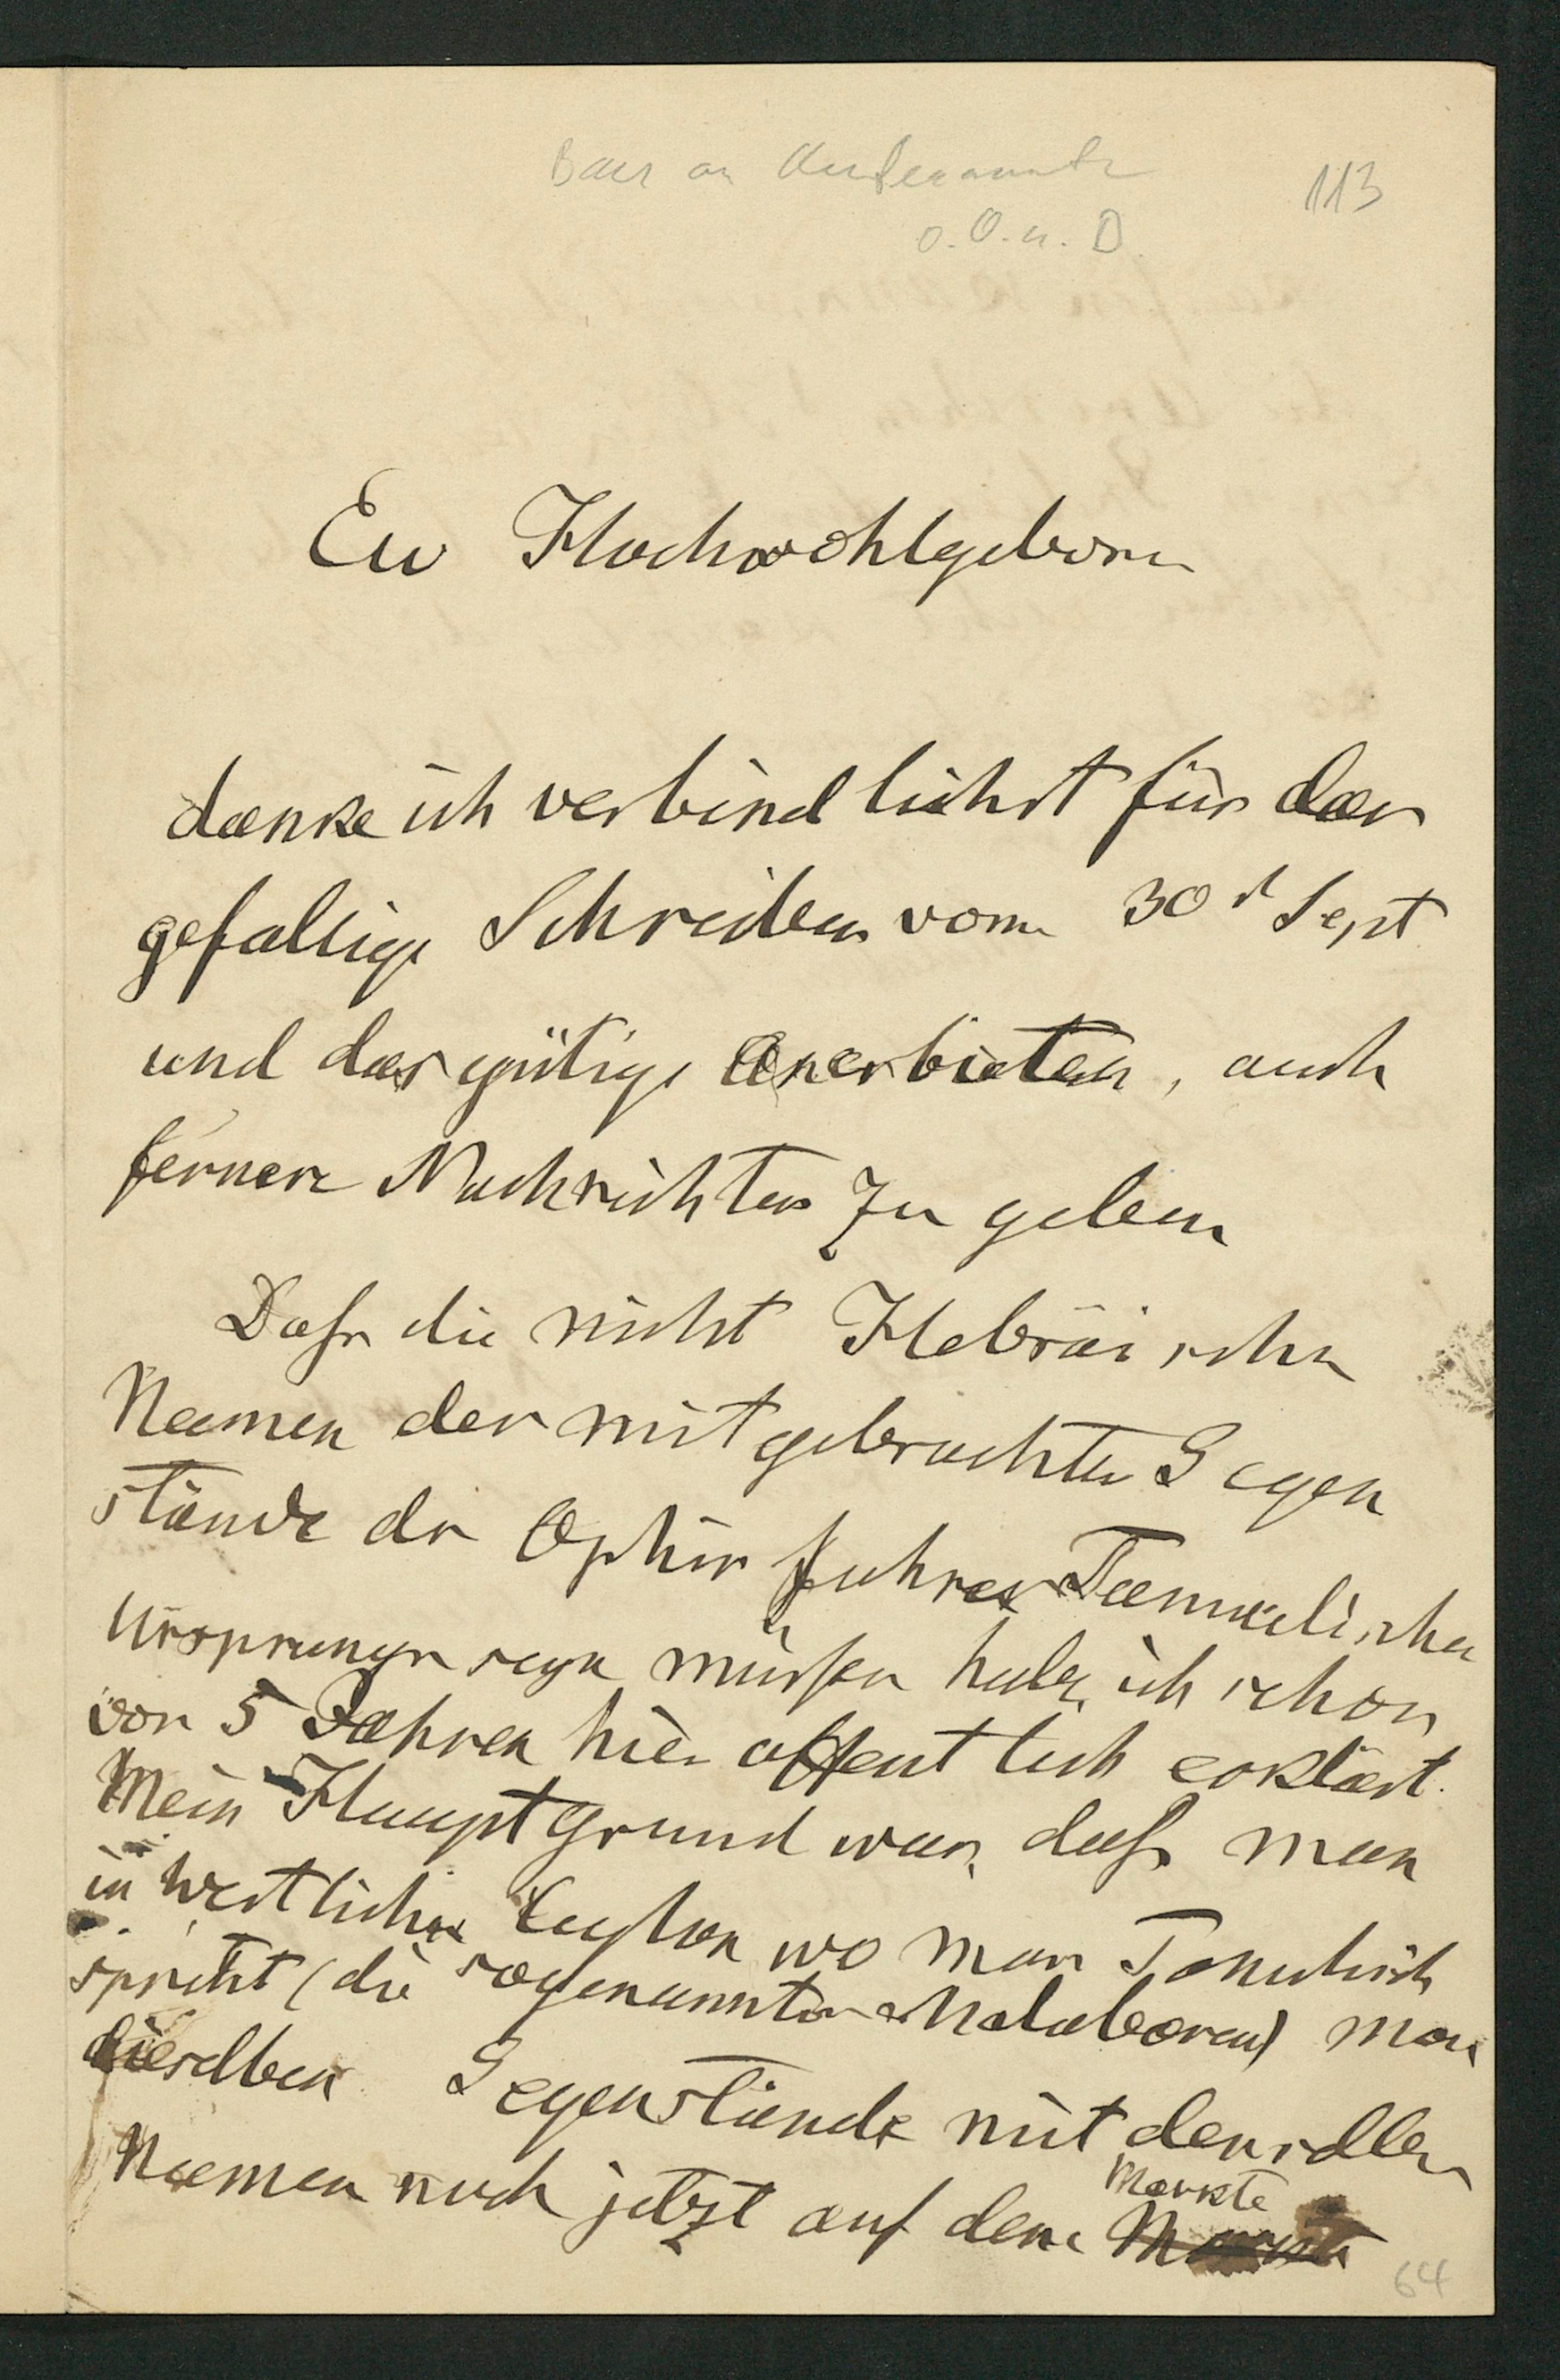 Baer an Unbekannt
113
o. O. u. D.
Ew Hochwohlgeborn
danke ich verbindlichst für das
gefallige Schreiben vom 30st Sept
und das gütige Anerbieten, auch
fernere Nachrichten zu geben
Dass die nicht Hebräischen
Namen der mitgebrachten Gegen
stände der Ophir fuhren Tamulischen
Ursprungs seyn müssen habe ich schon
vor 5 Jahren hier offentlich erklärt.
Mein Hauptgrund war, dass man
in westlichen Ceylon wo man Tamulisch
spricht (die sogenannten Malabaren) man
dieselben Gegenstände mit denselben
Namen noch jetzt auf dem Markte
64